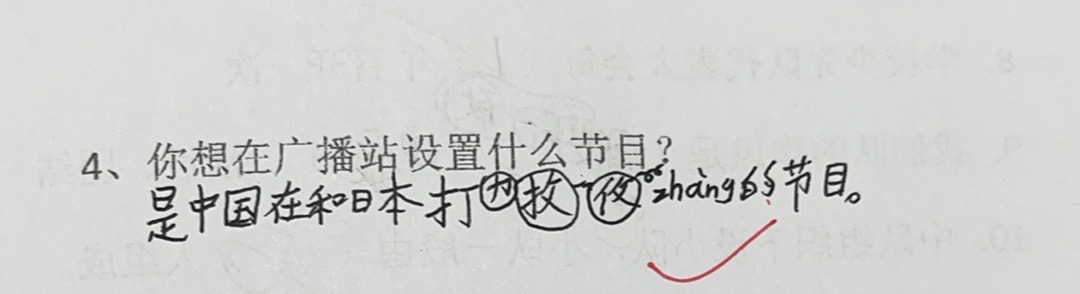 4、你想在广播站设置什么节目？
是中国在和日本打 zhàng的节目。